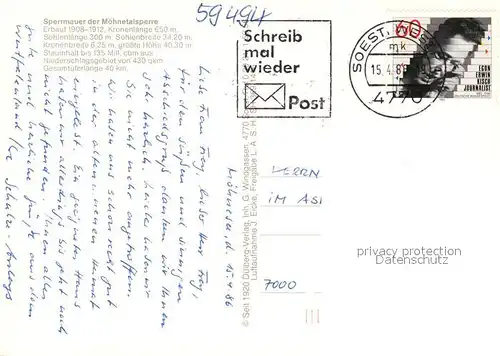 59494
Spermauer der Möhnetalsperre
Erbaut 1908-1912, Kronenlänge 650 m,
Sohlenlänge 300 m Sohlenbreite 34,20 m,
Kronenbreite 6,25 m, größte Höhe 40,30 m
Stauinhalt bis 135 Mill. cbm aus
Niederschlagsgebiet von 420 qkm
Gesamtuferlänge 40 km.
Schreib
mal
wieder
Post
SOEST,
mk
15.4.8
4770
60
EGON
ERWIN
KISCH
JOURNALIST
Möhnesee, d. 15.4.86
Liebe Frau Frey, lieber Herr Frey,
für den süßen und sinnigen
Abschiedsgruß danken wir Ihnen
sehr herzlich. Leider haben wir
Sie nicht mehr angetroffen.
Wir haben uns schon recht gut
in der alten, neuen Heimat
Ein geeignetes Haus
haben wir allerdings bis jetzt noch
nicht gefunden. Ihnen alles
Gute und herzliche Grüße aus dem
Westfalenland Ihre
© Seit 1920 Dülberg-Verlag, Inh. G. Windgassen, 4770 Soest
Luftaufnahme J. Eicke, Freigabe L.A.S.H.
HERRN
IM ASI
7000
privacy protection
Datenschutz